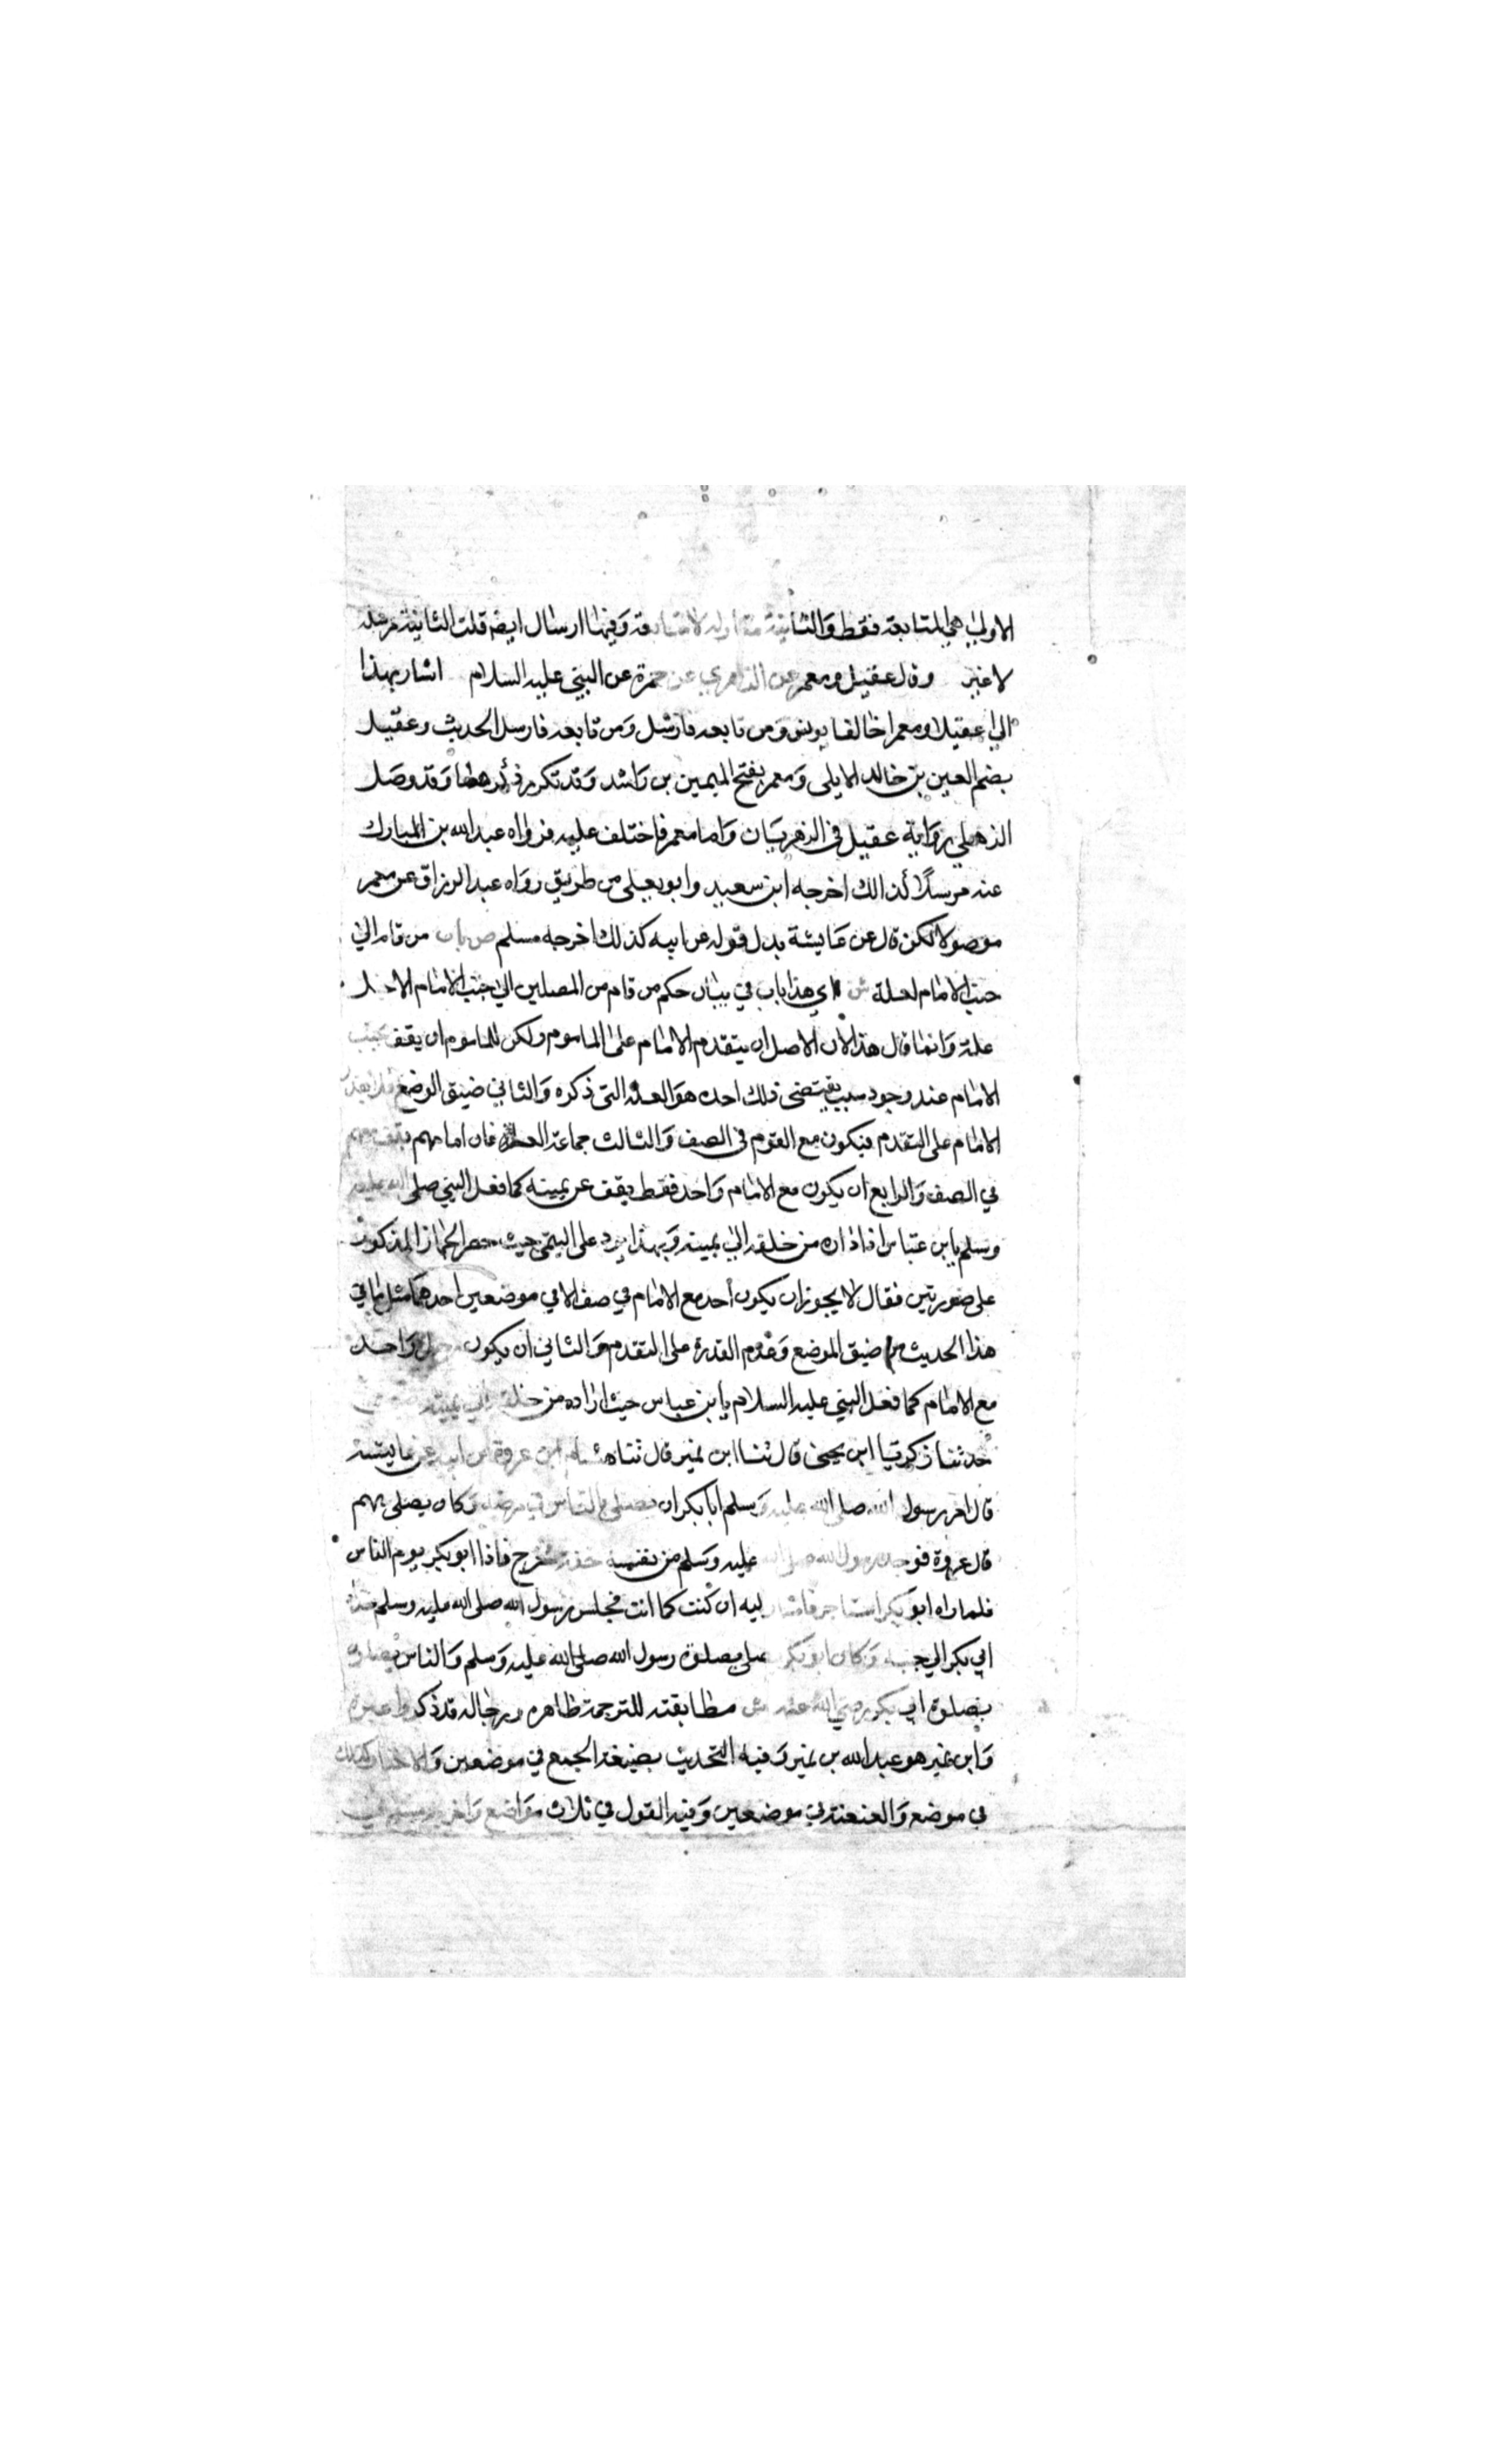 الاولى هي المتابعة فقط والثانية مقاولة لا متابعة وفيها ارسال ايضا قلت الثانية مرسلة
لا غير وقال عقيل ومعمر عن الزهري عن حمزة عن النبي عليه السلام اشار بهذا
الى عقيلا ومعمرا خالفا يونس ومن تابعه فارسل ومن تابعه فارسل الحديث وعقيل
بضم العين بن خالد الايلي ومعمر بفتح الميمين بن راشد وقد تكرر ذكرهما وقد وصل
الذهلي رواية عقيل في الزهريات واما معمر فاختلف عليه فرواه عبد الله بن المبارك
عنه مرسلا كذالك اخرجه ابن سعيد وابو يعلى من طريق رواه عبد الرزاق عن معمر
موصولا لكن قال عن عايشة بدل قوله عن ابيه كذلك اخرجه مسلم ص باب من قام الى
جنب الامام لعلة ش اي هذا باب في بيان حكم من قام من المصلين الى جنب الامام لاجل
علة وانما قال هذا لان الاصل ان يتقدم الامام على الماموم ولكن للماموم ان يقف بجنب
الامام عند وجود سبب يقتضى ذلك احده هو العلة التى ذكره والثاني ضيق الوضع فلا يقدر
الامام على التقدم فيكون مع القوم في الصف والثالث جماعة العراة فان امامهم يقف معهم
في الصف والرابع ان يكون مع الامام واحد فقط يقف عن يمينه كما فعل النبي صلى الله عليه
وسلم يابن عباس اذ اداره من خلفه الى يمينه وبهذا يرد على التيمى حيث حصر الجواز المذكور
على صورتين فقال لا يجوز ان يكون احد مع الامام في صف الا في موضعين احدهما مثل ما في
هذا الحديث من ضيق الموضع وعدم القدرة على التقدم والثاني ان يكون رجل واحد
مع الامام كما فعل النبي عليه السلام يابن عباس حيث اداره من خلفه الى يمينه
حدثنا زكريا ابن يحيى قال ثنا ابن نمير قال ثنا هشام ابن عروة عن ابيه عن عايشة
قال امر رسول الله صلى الله عليه وسلم ابا بكر ان يصلى بالناس في مرضه وكان يصلى بهم
قال عروة فوجد رسول الله صلى الله عليه وسلم من نفسه خفة فخرج فاذا ابو بكر يوم الناس
فلما راه ابو بكر استاخر فاشار اليه ان كنت كما انت فجلس رسول الله صلى الله عليه وسلم حذاء
ابي بكر الى جنبه وكان ابو بكر يصلي بصلوة رسول الله صلى الله عليه وسلم والناس يصلون
بصلوة ابي بكر رضي الله عنه ش مطابقته للترجمة ظاهره ورجاله قد ذكروا غير مرة
وابن نمير هو عبد الله بن نمير وفيه التحديث بصيغة الجمع في موضعين والاخبار كذلك
في موضع والعنعنة في موضعين وفيه القول في ثلاث مواضع واخرجه مسلم في